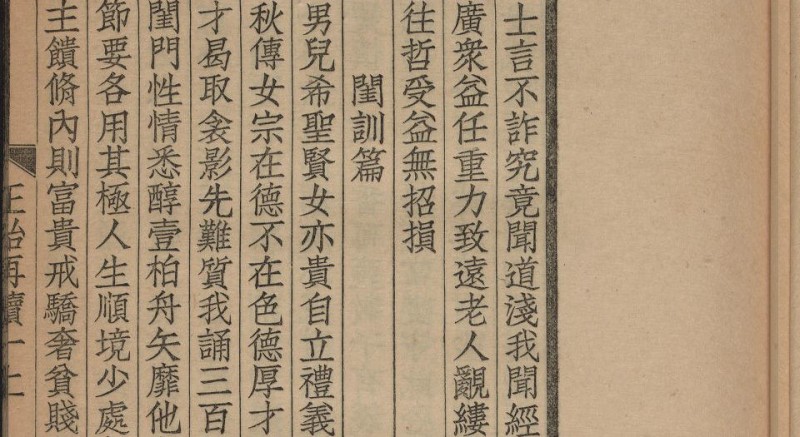 士言不詐究竟聞道淺我聞經
廣衆益任重力致遠老人覼縷
往哲受益無招損
閨訓篇
男兒希聖賢女亦貴自立禮義
秋傳女宗在德不在色德厚才
才曷取衾影先難質我誦三百
閨門性情悉醇壹柏舟矢靡他
節要各用其極人生順境少處
主饋脩內則富貴戒驕奢貧賤